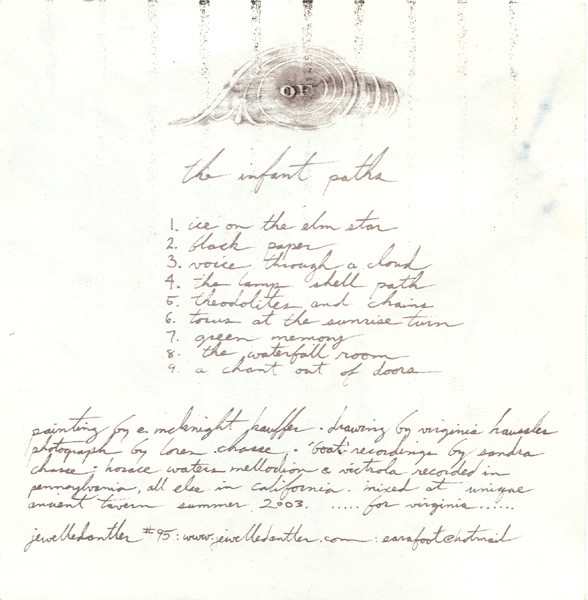 OF
the infant paths
1. ice on the elm star
2. black paper
3. voice through a cloud
4. the lamp shell path
5. theodolites and chains
6. torus at the sunrise turn
7. green memory
8. the waterfall room
9. a chant out of doors
painting by e. mcknight kauffer · drawing by virginia haussler
photograph by loren chasse · 'boat' recordings by sandra
chasse · horace waters mellodion & victrola recorded in
pennsylvania, all else in california. mixed at unique
ancient tavern summer 2003. ..... for virginia ......
jewelledantler #95 : www.jewelledantler.com : earafoot@hotmail